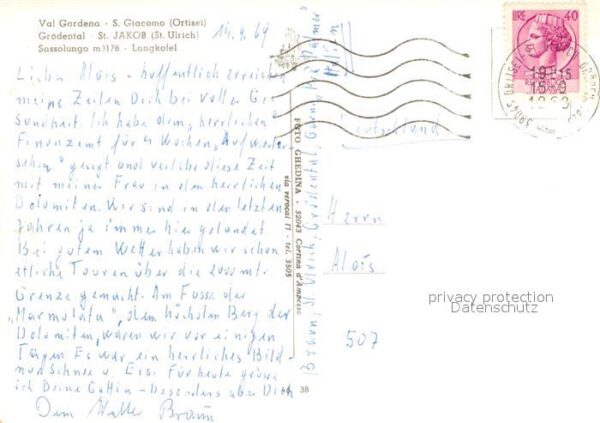 Val Gardena - S. Giacomo (Ortisei)
Grödental - St. JAKOB (St. Ulrich)
Sassolungo m 3178 - Langkofel
14.9.69
Lieber Alois - hoffentlich erreichen
meine Zeilen Dich bei voller Ge-
sundheit. Ich habe dem "herrlichen"
Finanzamt für 4 Wochen "Auf wieder-
sehen" gesagt und verlebe diese Zeit
mit meiner Frau in den herrlichen
Dolomiten. Wir sind in den letzten
Jahren ja immer hier gelandet
Bei gutem Wetter haben wir schon
etliche Touren über die 2000 mt.
Grenze gemacht. Am Fusse der
"Marmolata", dem höchsten Berg der
Dolomiten, waren wir vor einigen
Tagen Es war ein herrliches Bild
nur Schnee u. Eis. Für heute grüsse
ich Deine Gattin - besonders aber Dich
Dein Walter Braun
FOTO GHEDINA - 32043 Cortina d'Ampezzo
via verocai 17 - tel. 3505
Braun, St. Ulrich, Grödental,
38
LIRE 40
39046 ORTISEI
19
15
15-9
1969
Deutschland
Herrn
Alois
507
privacy protection
Datenschutz